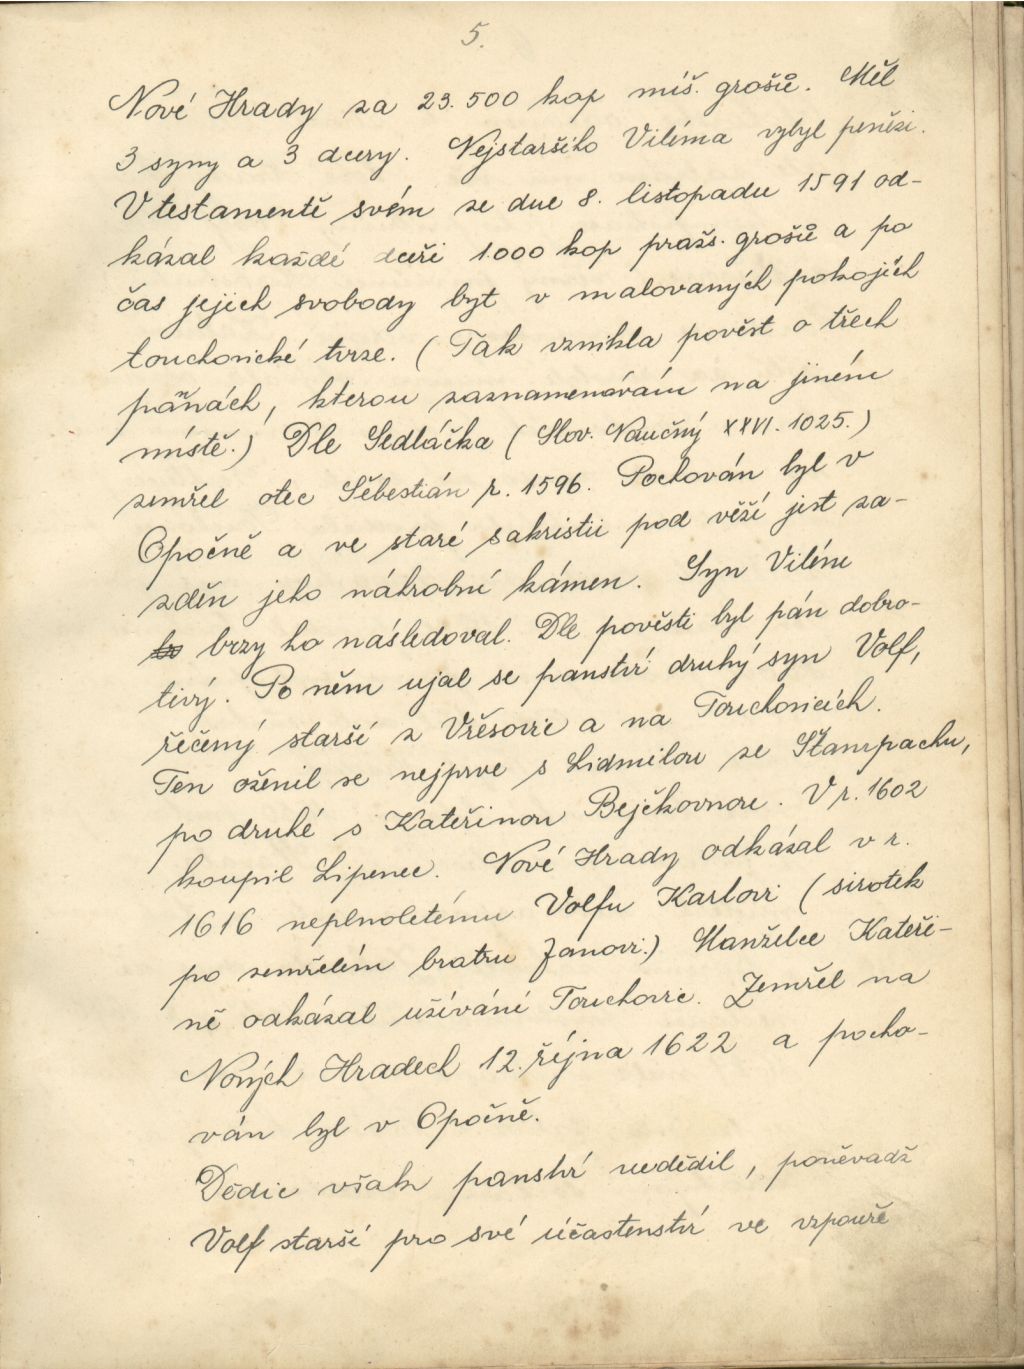 5.
Nové Hrady za 23.500 kop míš. grošů. Měl
3 syny a 3 dcery. Nejstaršího Viléma vybyl penězi.
V testamentě svém ze dne 8. listopadu 1591 od-
kázal každé dceři 1.000 kop pražs. grošů a po
čas jejich svobody byt v malovaných pokojích
touchovické tvrze. (Tak vznikla pověst o třech
pannách, kterou zaznamenávám na jiném
místě.) Dle Sedláčka (Slov. Naučný XXVI. 1025.)
zemřel otec Šebestián r. 1596. Pochován byl v
Opočně a ve staré sakristii pod věží jest za-
zděn jeho náhrobní kámen. Syn Vilém
ho brzy ho následoval. Dle pověsti byl pán dobro-
tivý. Po něm ujal se panství druhý syn Volf,
řečený starší z Vřesovic a na Touchovicích.
Ten oženil se nejprve s Lidmilou ze Štampachu,
po druhé s Kateřinou Bejčkovnou. V r. 1602
koupil Lipenec. Nové Hrady odkázal v r.
1616 neplnoletému Volfu Karlovi (sirotek
po zemřelém bratru Janovi.) Manželce Kateři-
ně odkázal užívání Touchovic. Zemřel na
Nových Hradech 12. října 1622 a pocho-
ván byl v Opočně.
Dědic však panství nedědil, poněvadž
Volf starší pro své účastenství ve vzpouře